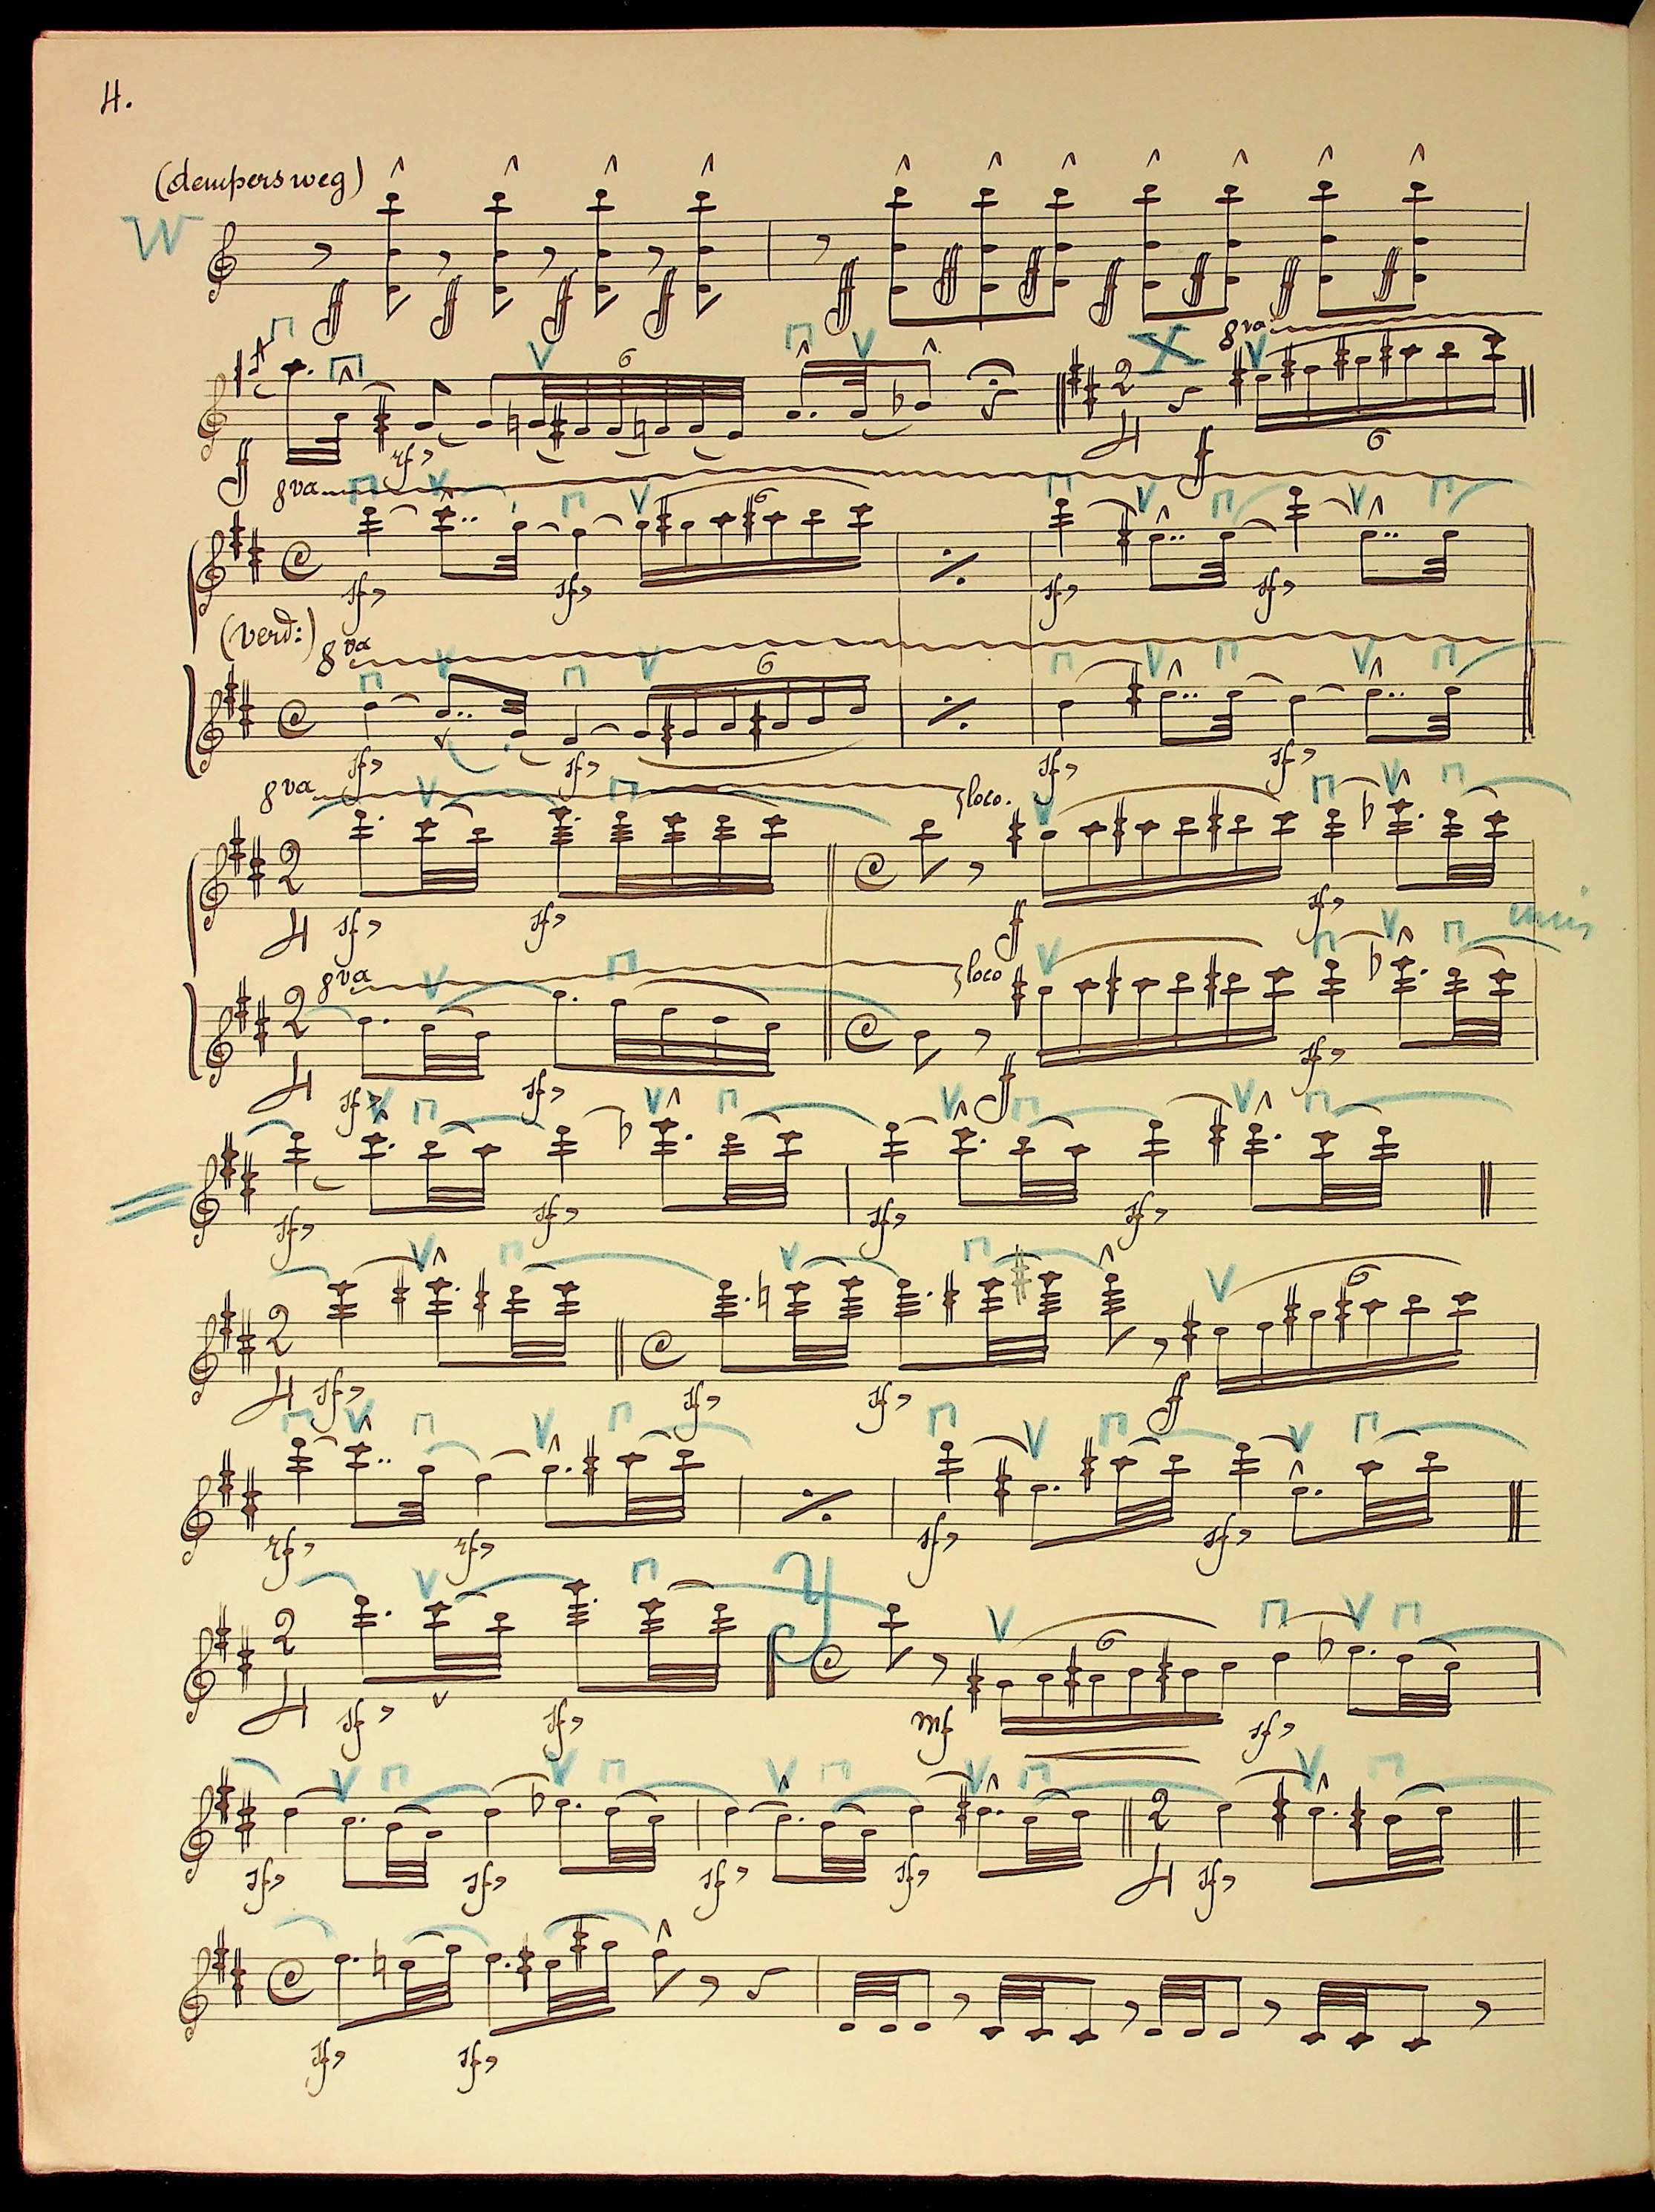 4.
(dempers weg)
W
ff ff ff ff ff ff ff ff ff ff ff
6
X
8va
2
4
ff rf> f 6
8va
6
sf> sf> sf> sf>
(verd:) 8va
6
sf> sf> sf> sf>
8va loco.
2
4 sf> sf> f sf>
unis
8va loco
2
4 sf> sf> f sf>
sf> sf> sf> sf>
6
2
4 sf> sf> sf> f
rf> rf> sf> sf>
Y
2 6
4 sf> sf> mf sf>
2
sf> sf> sf> sf> 4 sf>
sf> sf>